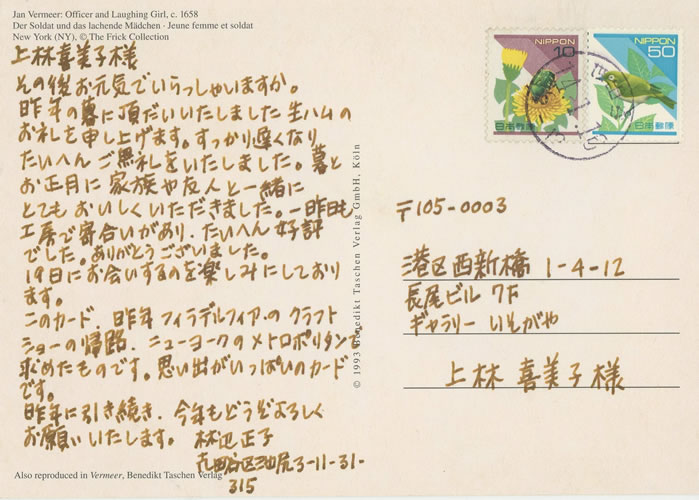 Jan Vermeer: Officer and Laughing Girl, c. 1658
Der Soldat und das lachende Mädchen · Jeune femme et soldat
New York (NY), © The Frick Collection
上林喜美子様
その後お元気でいらっしゃいますか。
昨年の暮に頂だいいたしました生ハムの
お礼を申し上げます。すっかり遅くなり
たいへんご無礼をいたしました。暮と
お正月に家族や友人と一緒に
とてもおいしくいただきました。一昨日も
工房で寄合いがあり、たいへん好評
でした。ありがとうございました。
19日にお会いするのを楽しみにしており
ます。
このカード、昨年フィラデルフィアのクラフト
ショーの帰路、ニューヨークのメトロポリタンで
求めたものです。思い出がいっぱいのカード
です。
昨年に引き続き、今年もどうぞよろしく
お願いいたします。 林辺正子
世田谷区池尻3-11-31-
315
Also reproduced in Vermeer, Benedikt Taschen Verlag
© 1993 Benedikt Taschen Verlag GmbH, Köln
NIPPON
10
日本郵便
NIPPON
50
日本郵便
〒105-0003
港区西新橋 1-4-12
長尾ビル 7F
ギャラリー いそがや
上林 喜美子様